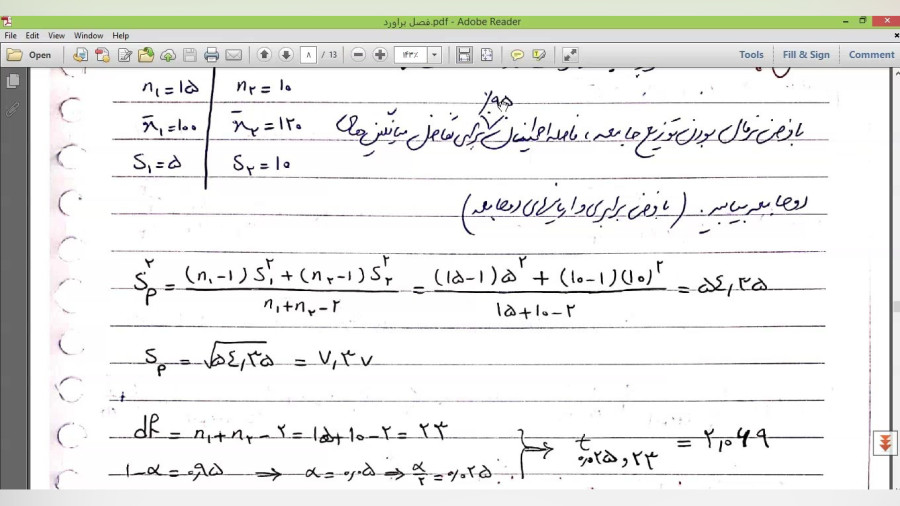 فصل براورد.pdf - Adobe Reader
File Edit View Window Help
Open ۸ / 13 ۱۴۳٪ Tools Fill & Sign Comment
n₁=۱۵ | n₂=۱۰
x̄₁=۱۰۰ | x̄₂=۱۲۰
S₁=۵ | S₂=۱۰
٪۹۵
با فرض نرمال بودن توزیع جامعه، فاصله اطمینان برای تفاضل میانگین های
دو جامعه بیابید. (با فرض برابری واریانس‌های دو جامعه)
S²p = ((n₁-۱)S₁² + (n₂-۱)S₂²) / (n₁+n₂-۲) = ((۱۵-۱)۵² + (۱۰-۱)(۱۰)²) / (۱۵+۱۰-۲) = ۵۴,۳۵
Sp = √۵۴,۳۵ = ۷,۳۷
df = n₁+n₂-۲ = ۱۵+۱۰-۲ = ۲۳
۱-α=۰,۹۵ ⇒ α=۰,۰۵ ⇒ α/۲=۰,۰۲۵ } ⇒ t۰,۰۲۵,۲۳ = ۲,۰۶۹